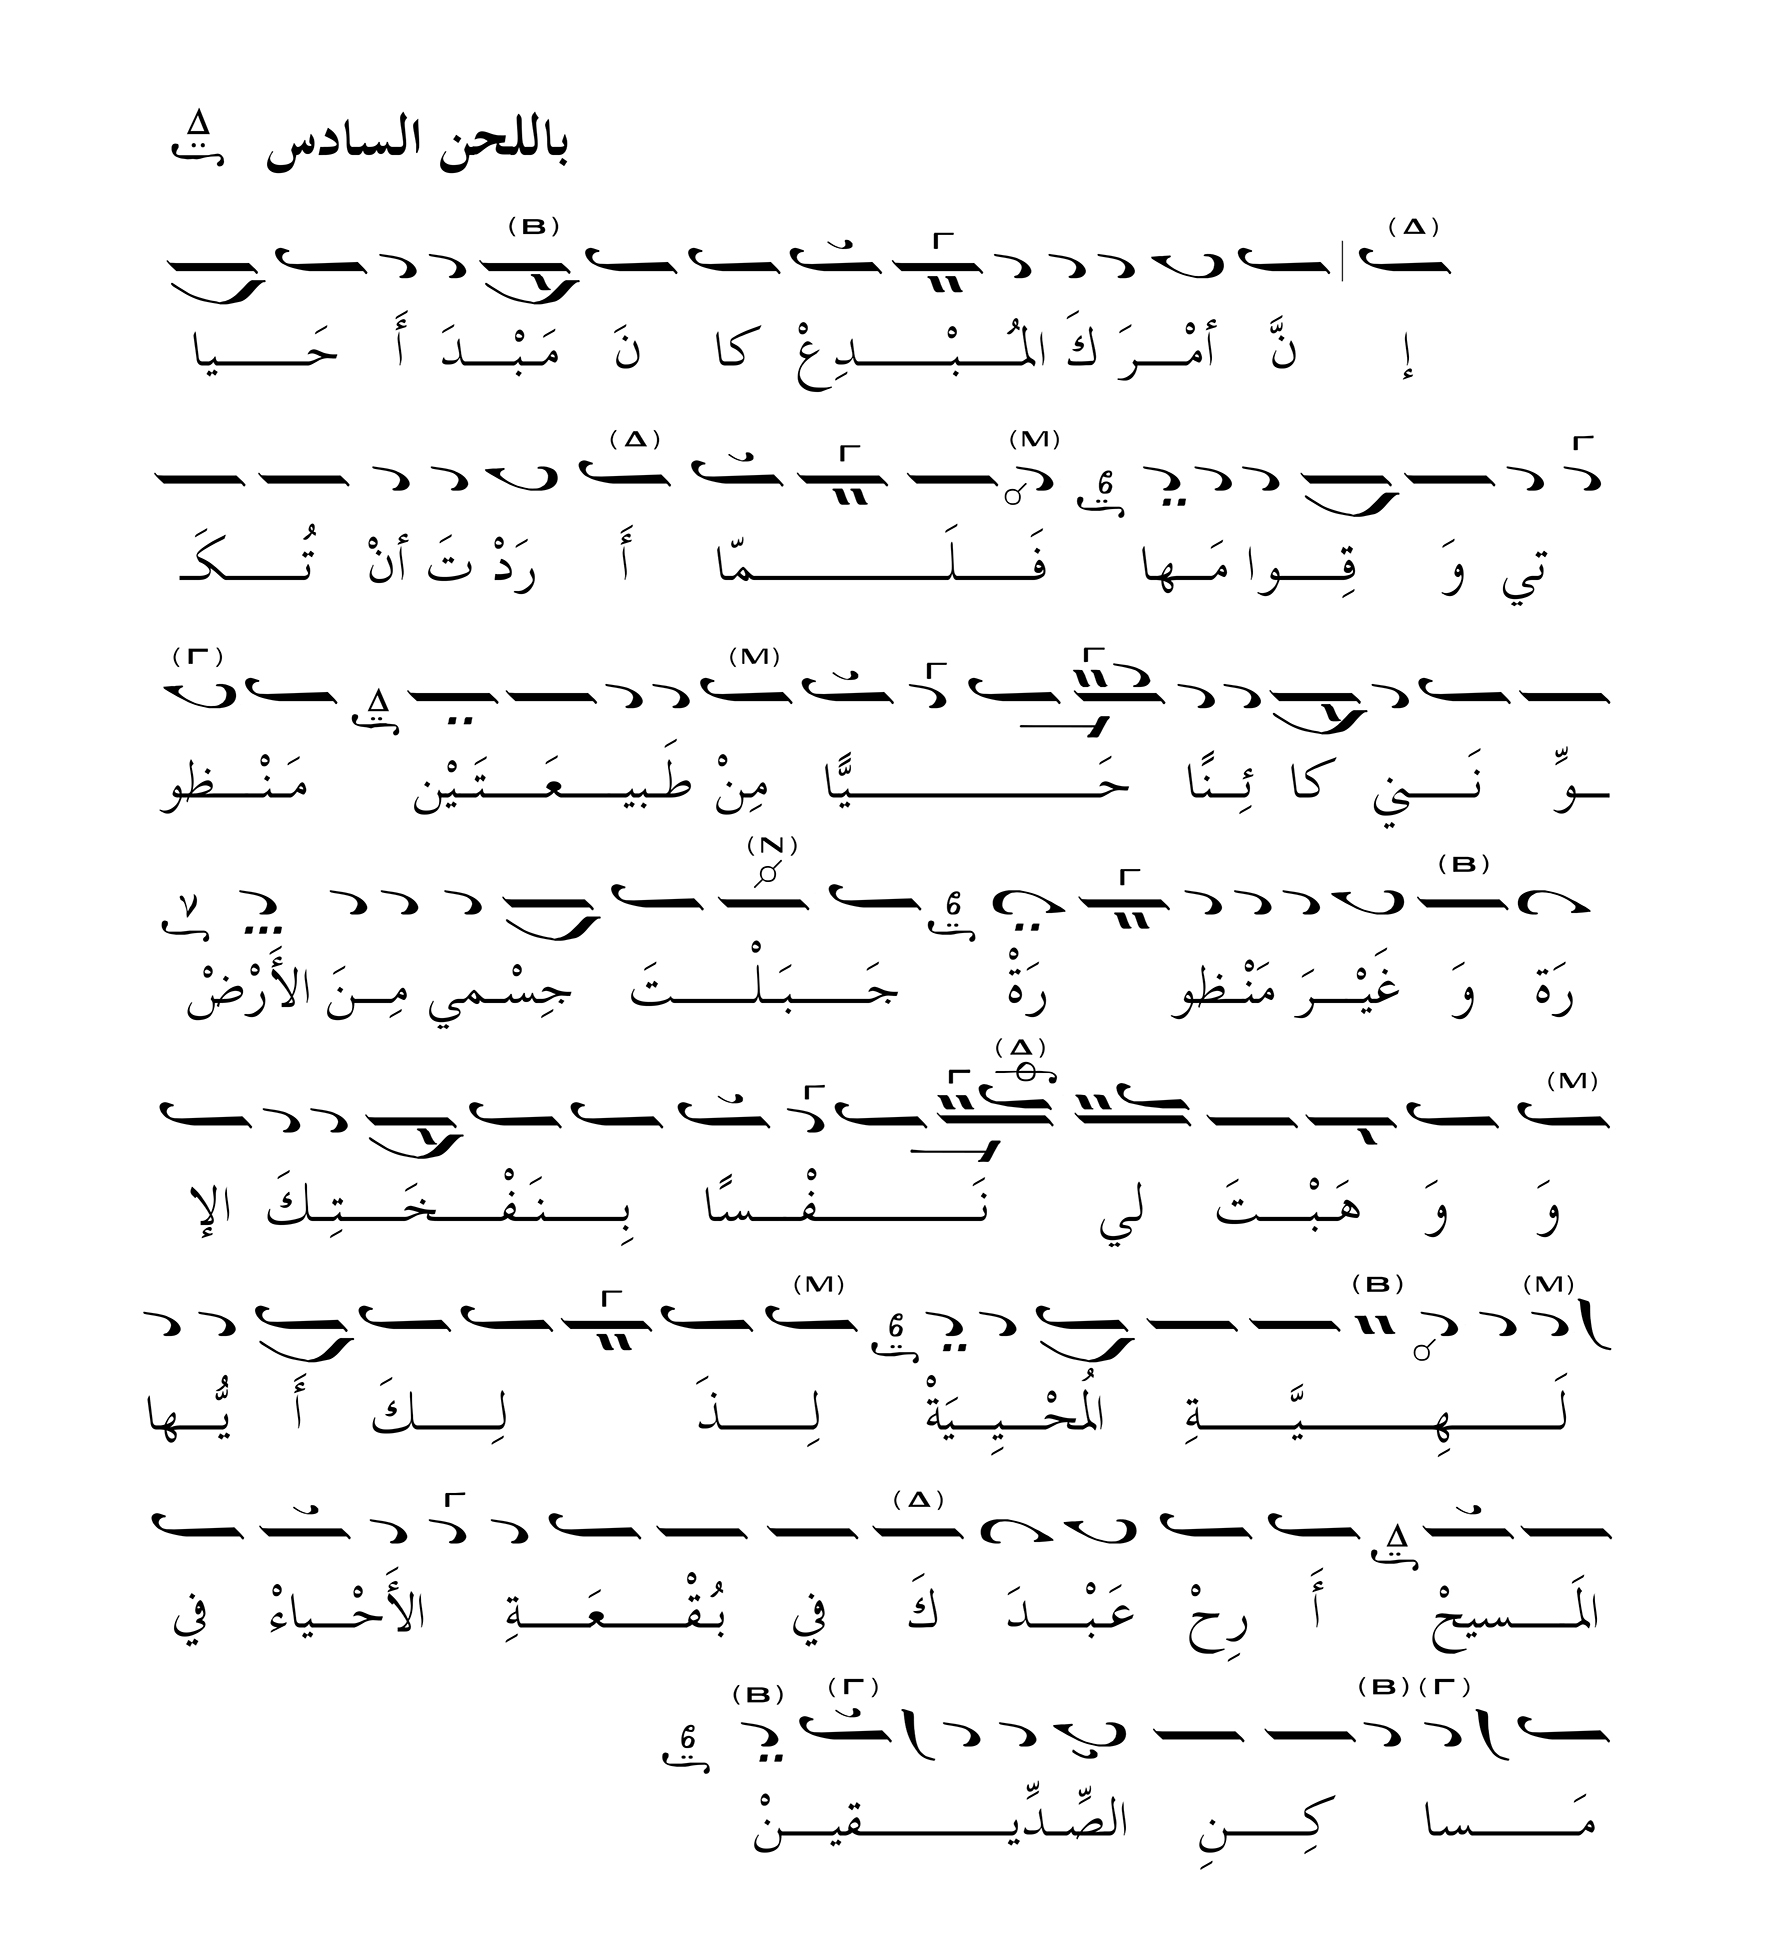 باللحن السادس Δ
(Δ) Γ (B)
إ نَّ أمْـرَ كَ المُـبْـدِعْ كا نَ مَـبْـدَ أَ حَـيا
Γ (M) Γ (Δ)
تي وَ قِـوا مَـها فَـلَـمّا أَ رَدْ تَ أنْ تُـكَـ
Γ Γ (M) Δ (Γ)
ـوِّ نَـني كا ئِـنًا حَـيًّا مِنْ طَـبيـعَـتَـيْن مَـنْـظو
(B) Γ (N)
رَة وَ غَيْـرَ مَنْـظو رَةْ جَـبَـلْـتَ جِسْـمي مِـنَ الأَرْضْ
(M) (Δ) Γ Γ
وَ وَ هَـبْـتَ لي نَـفْـسًا بِـنَـفْـخَـتِـكَ الإ
(M) (B) (M) Γ
لَـهِـيَّـةِ المُحْـيِـيَةْ لِـذَ لِـكَ أَ يُّـها
Δ (Δ) Γ
المَـسيحْ أَ رِحْ عَـبْـدَ كَ في بُـقْـعَـةِ الأَحْـياءْ في
(Γ) (B) (Γ) (B)
مَـسا كِـنِ الصِّـدِّيـقيـنْ